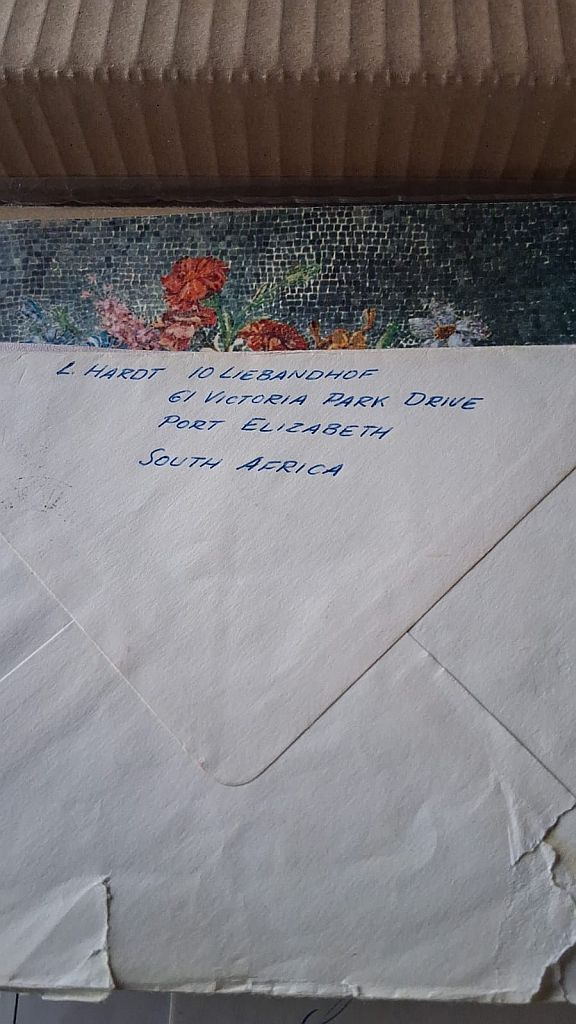 L. HARDT 10 LIEBANDHOF
61 VICTORIA PARK DRIVE
PORT ELIZABETH
SOUTH AFRICA